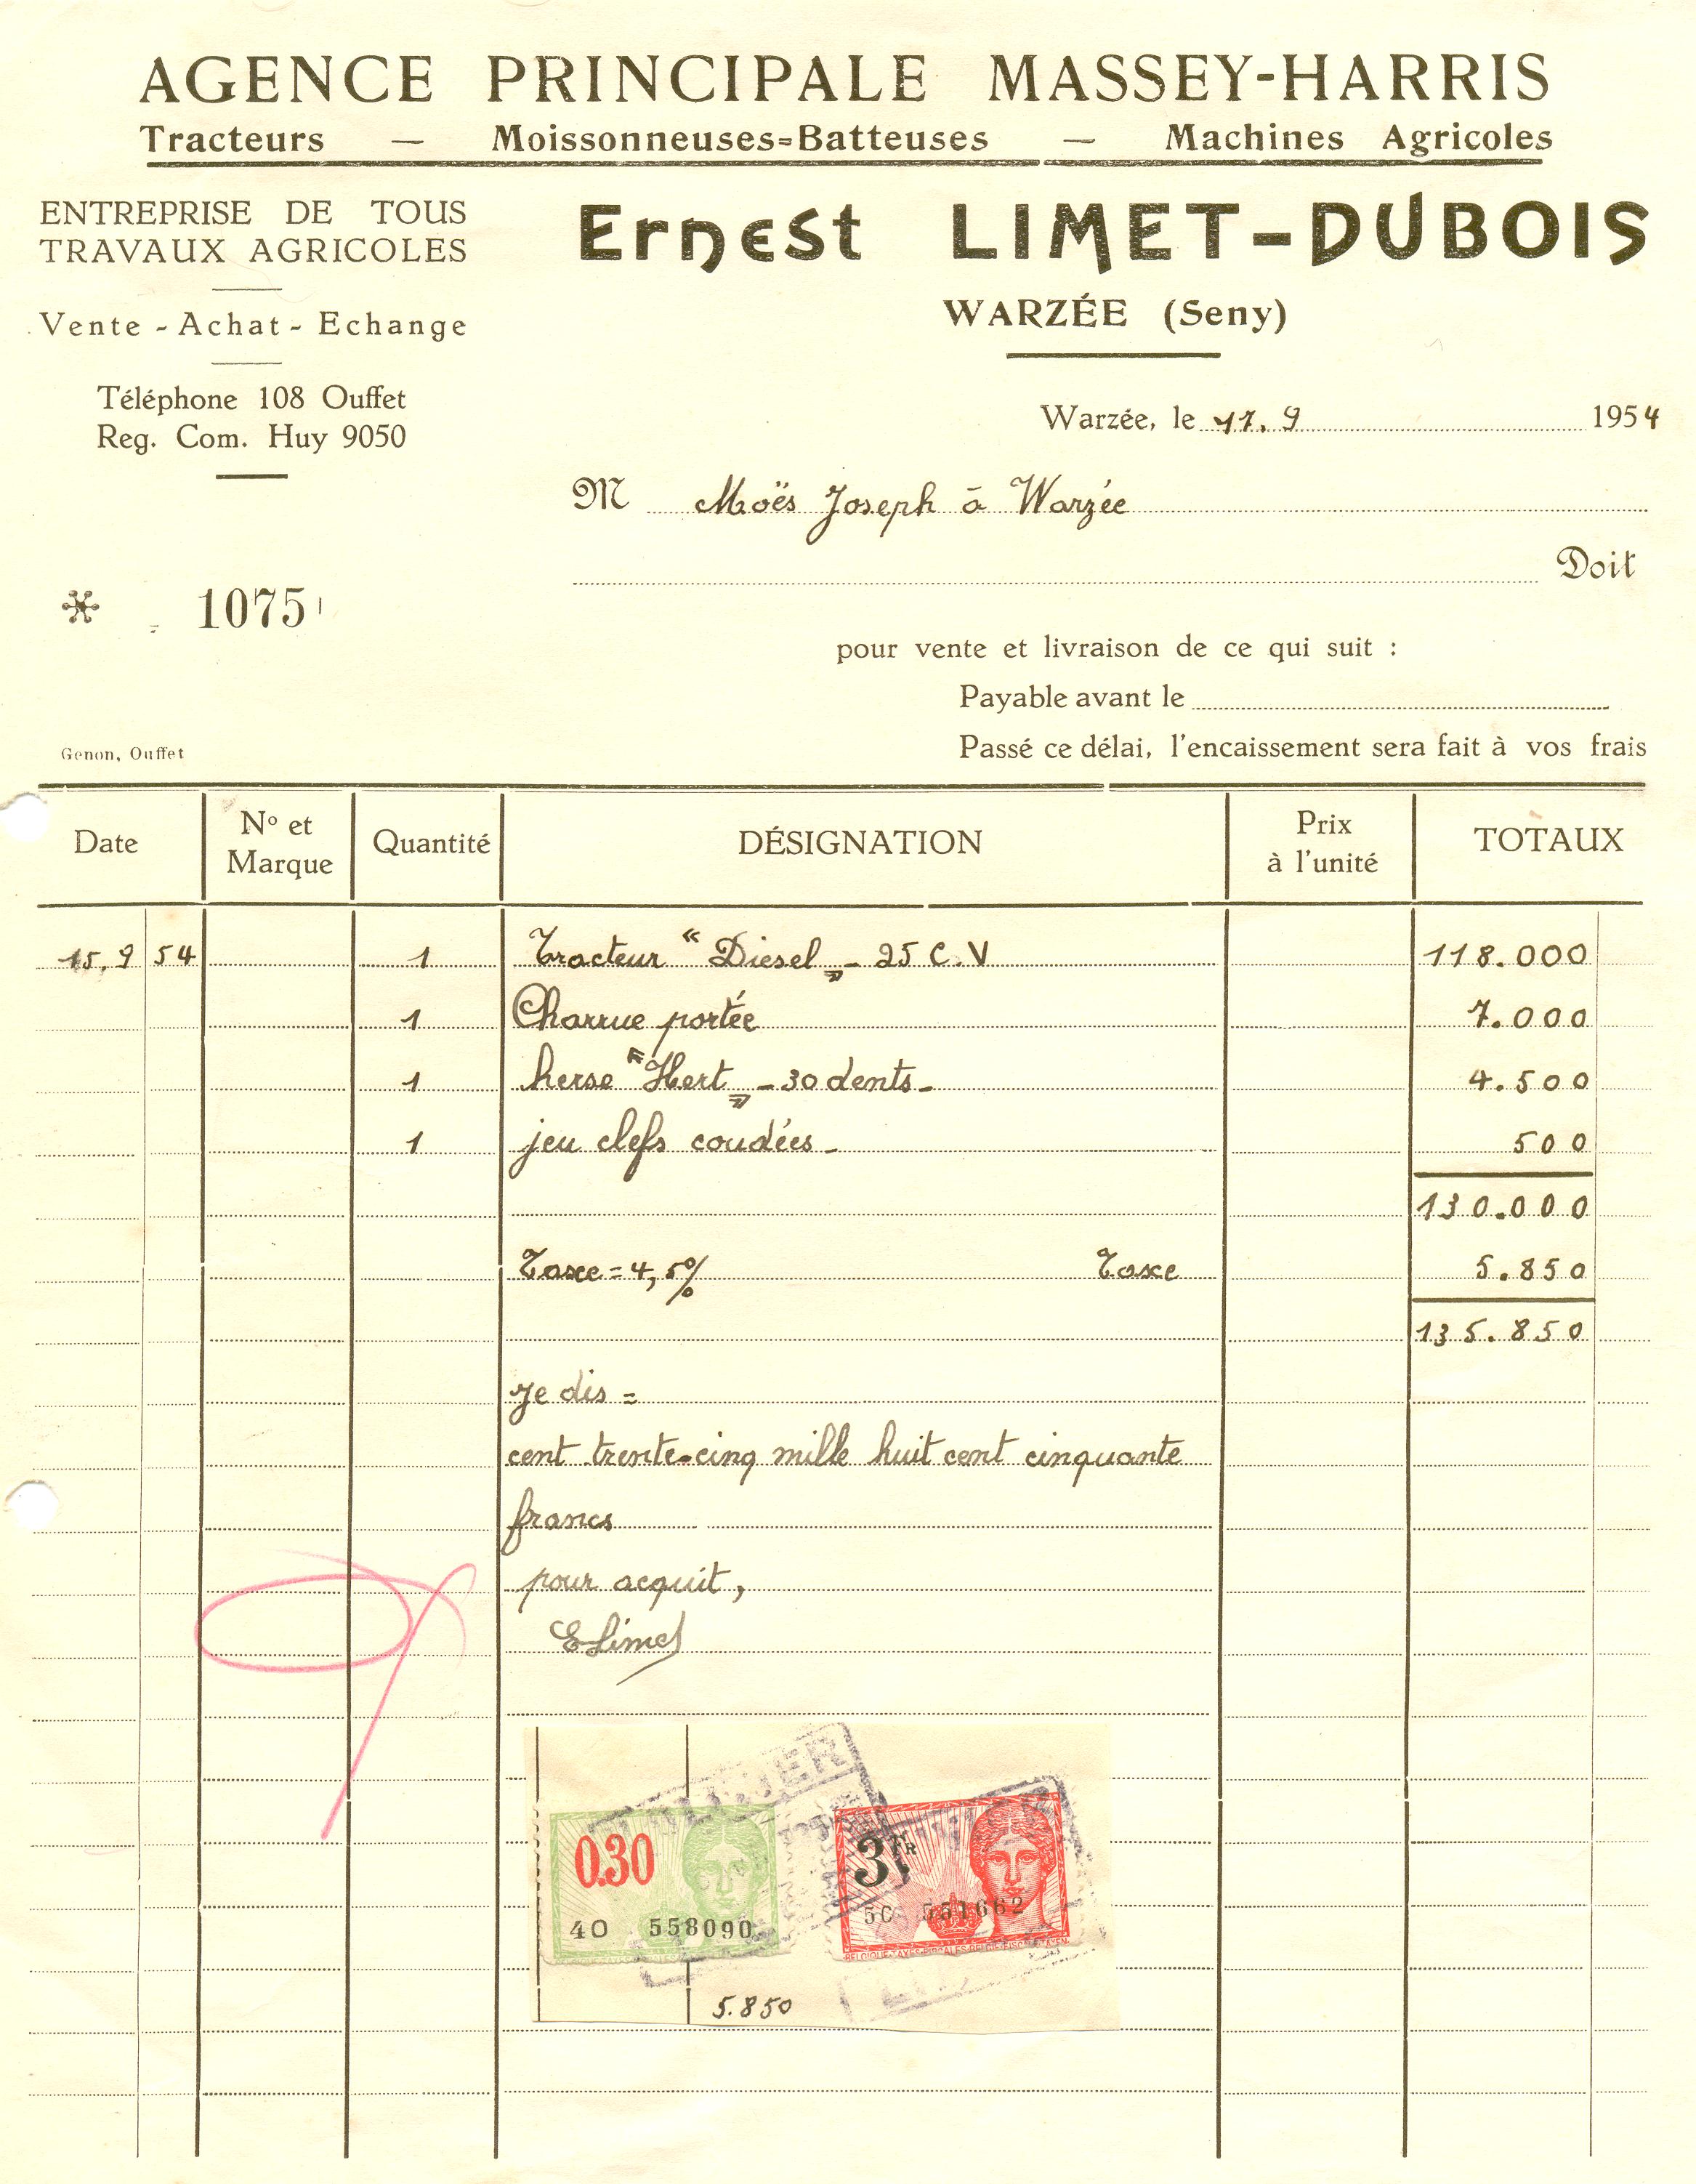 AGENCE PRINCIPALE MASSEY-HARRIS
Tracteurs — Moissonneuses=Batteuses — Machines Agricoles
ENTREPRISE DE TOUS
TRAVAUX AGRICOLES
Vente - Achat - Echange
Téléphone 108 Ouffet
Reg. Com. Huy 9050
Ernest LIMET-DUBOIS
WARZÉE (Seny)
Warzée, le 17.9 1954
M Moës Joseph à Warzée
Doit
1075
pour vente et livraison de ce qui suit :
Payable avant le
Passé ce délai, l'encaissement sera fait à vos frais
Genon, Ouffet
Date Nº et Marque Quantité DÉSIGNATION Prix à l'unité TOTAUX
15.9 54 1 Tracteur "Diesel" - 25 C.V 118.000
1 Charrue portée 7.000
1 herse "Hert" - 30 dents - 4.500
1 jeu clefs coudées - 500
130.000
Taxe = 4,5% Taxe 5.850
135.850
Je dis =
cent trente-cinq mille huit cent cinquante
francs
pour acquit,
E Limet
0.30
40 558090
3 FR
551662
5.850